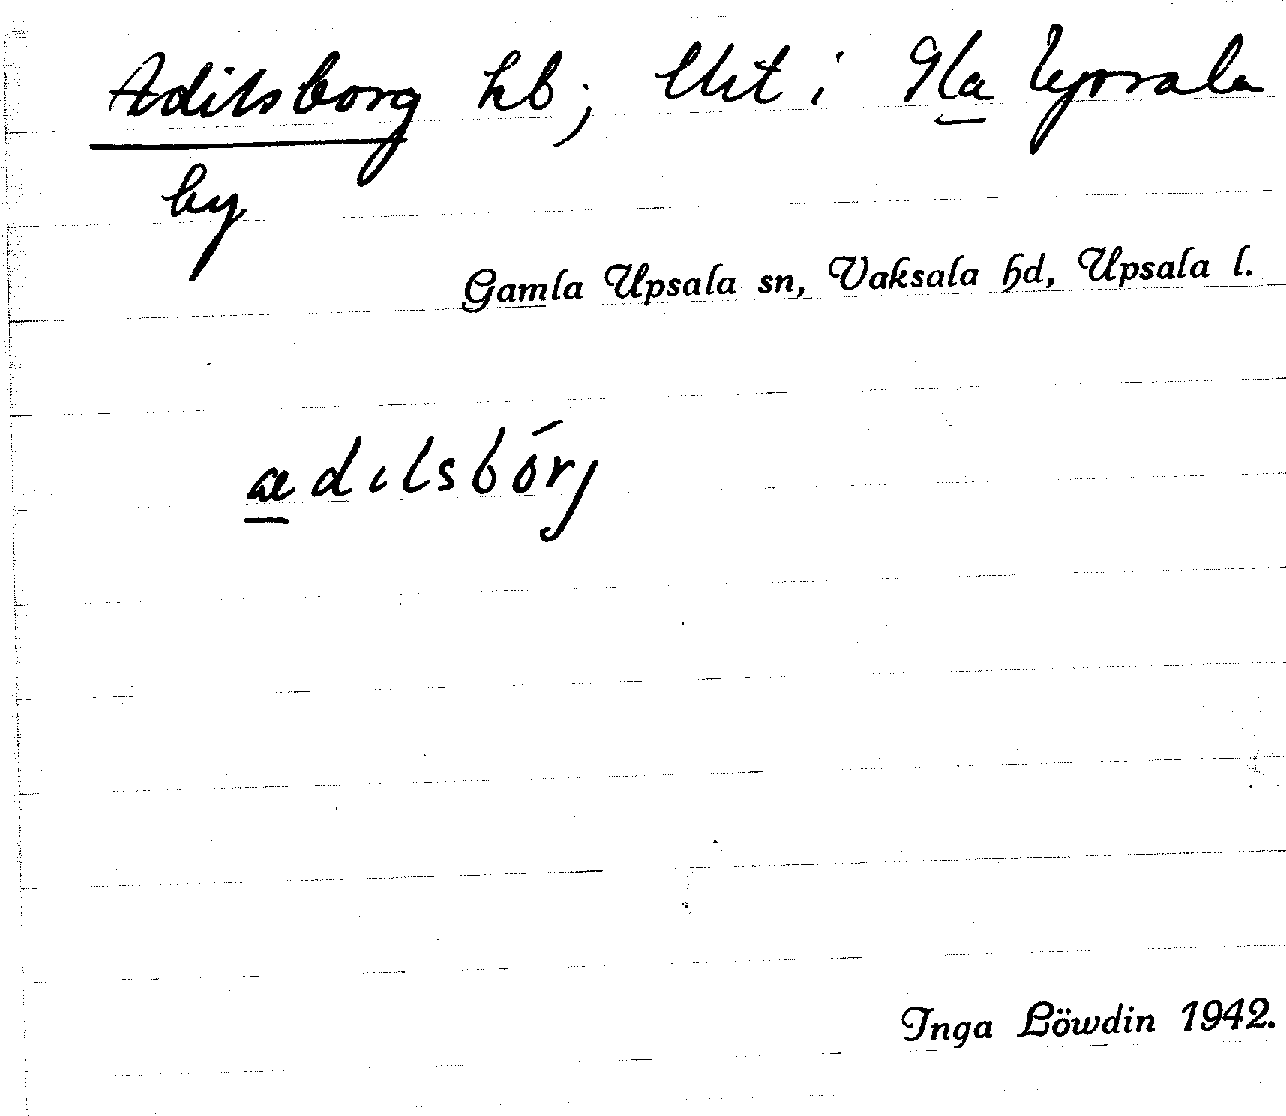 Adilsborg hb; Utt i Gla Upsala
by
Gamla Upsala sn, Vaksala hd, Upsala l.
ædılsbórj
Inga Löwdin 1942.